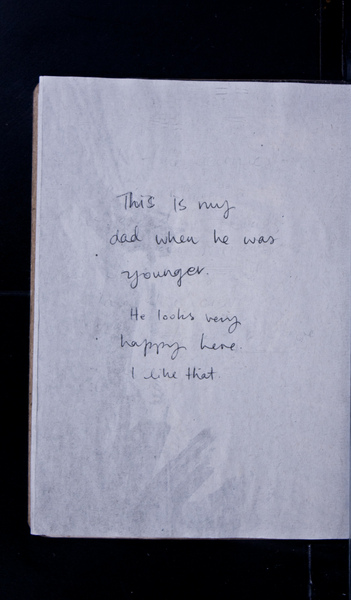 This is my
dad when he was
younger.
He looks very
happy here.
I like that.